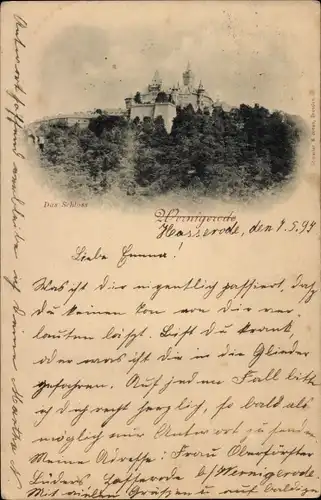 Das Schloss
Wernigerode
Hasserode, den 4.5.97
Liebe Emma!
Was ist dir eigentlich passiert, daß
du keinen Ton von dir ver-
lauten läßt. Bist du krank,
oder was ist dir in die Glieder
gefahren. Auf jeden Fall bitte
ich dich recht herzlich, so bald als
möglich eine Antwort zu senden.
Meine Adresse: Frau Oberförster
Lüders, Hasserode b/Wernigerode.
Mit vielen Grüßen u. auf baldige
Antwort hoffend verbleibe ich Deine Martha